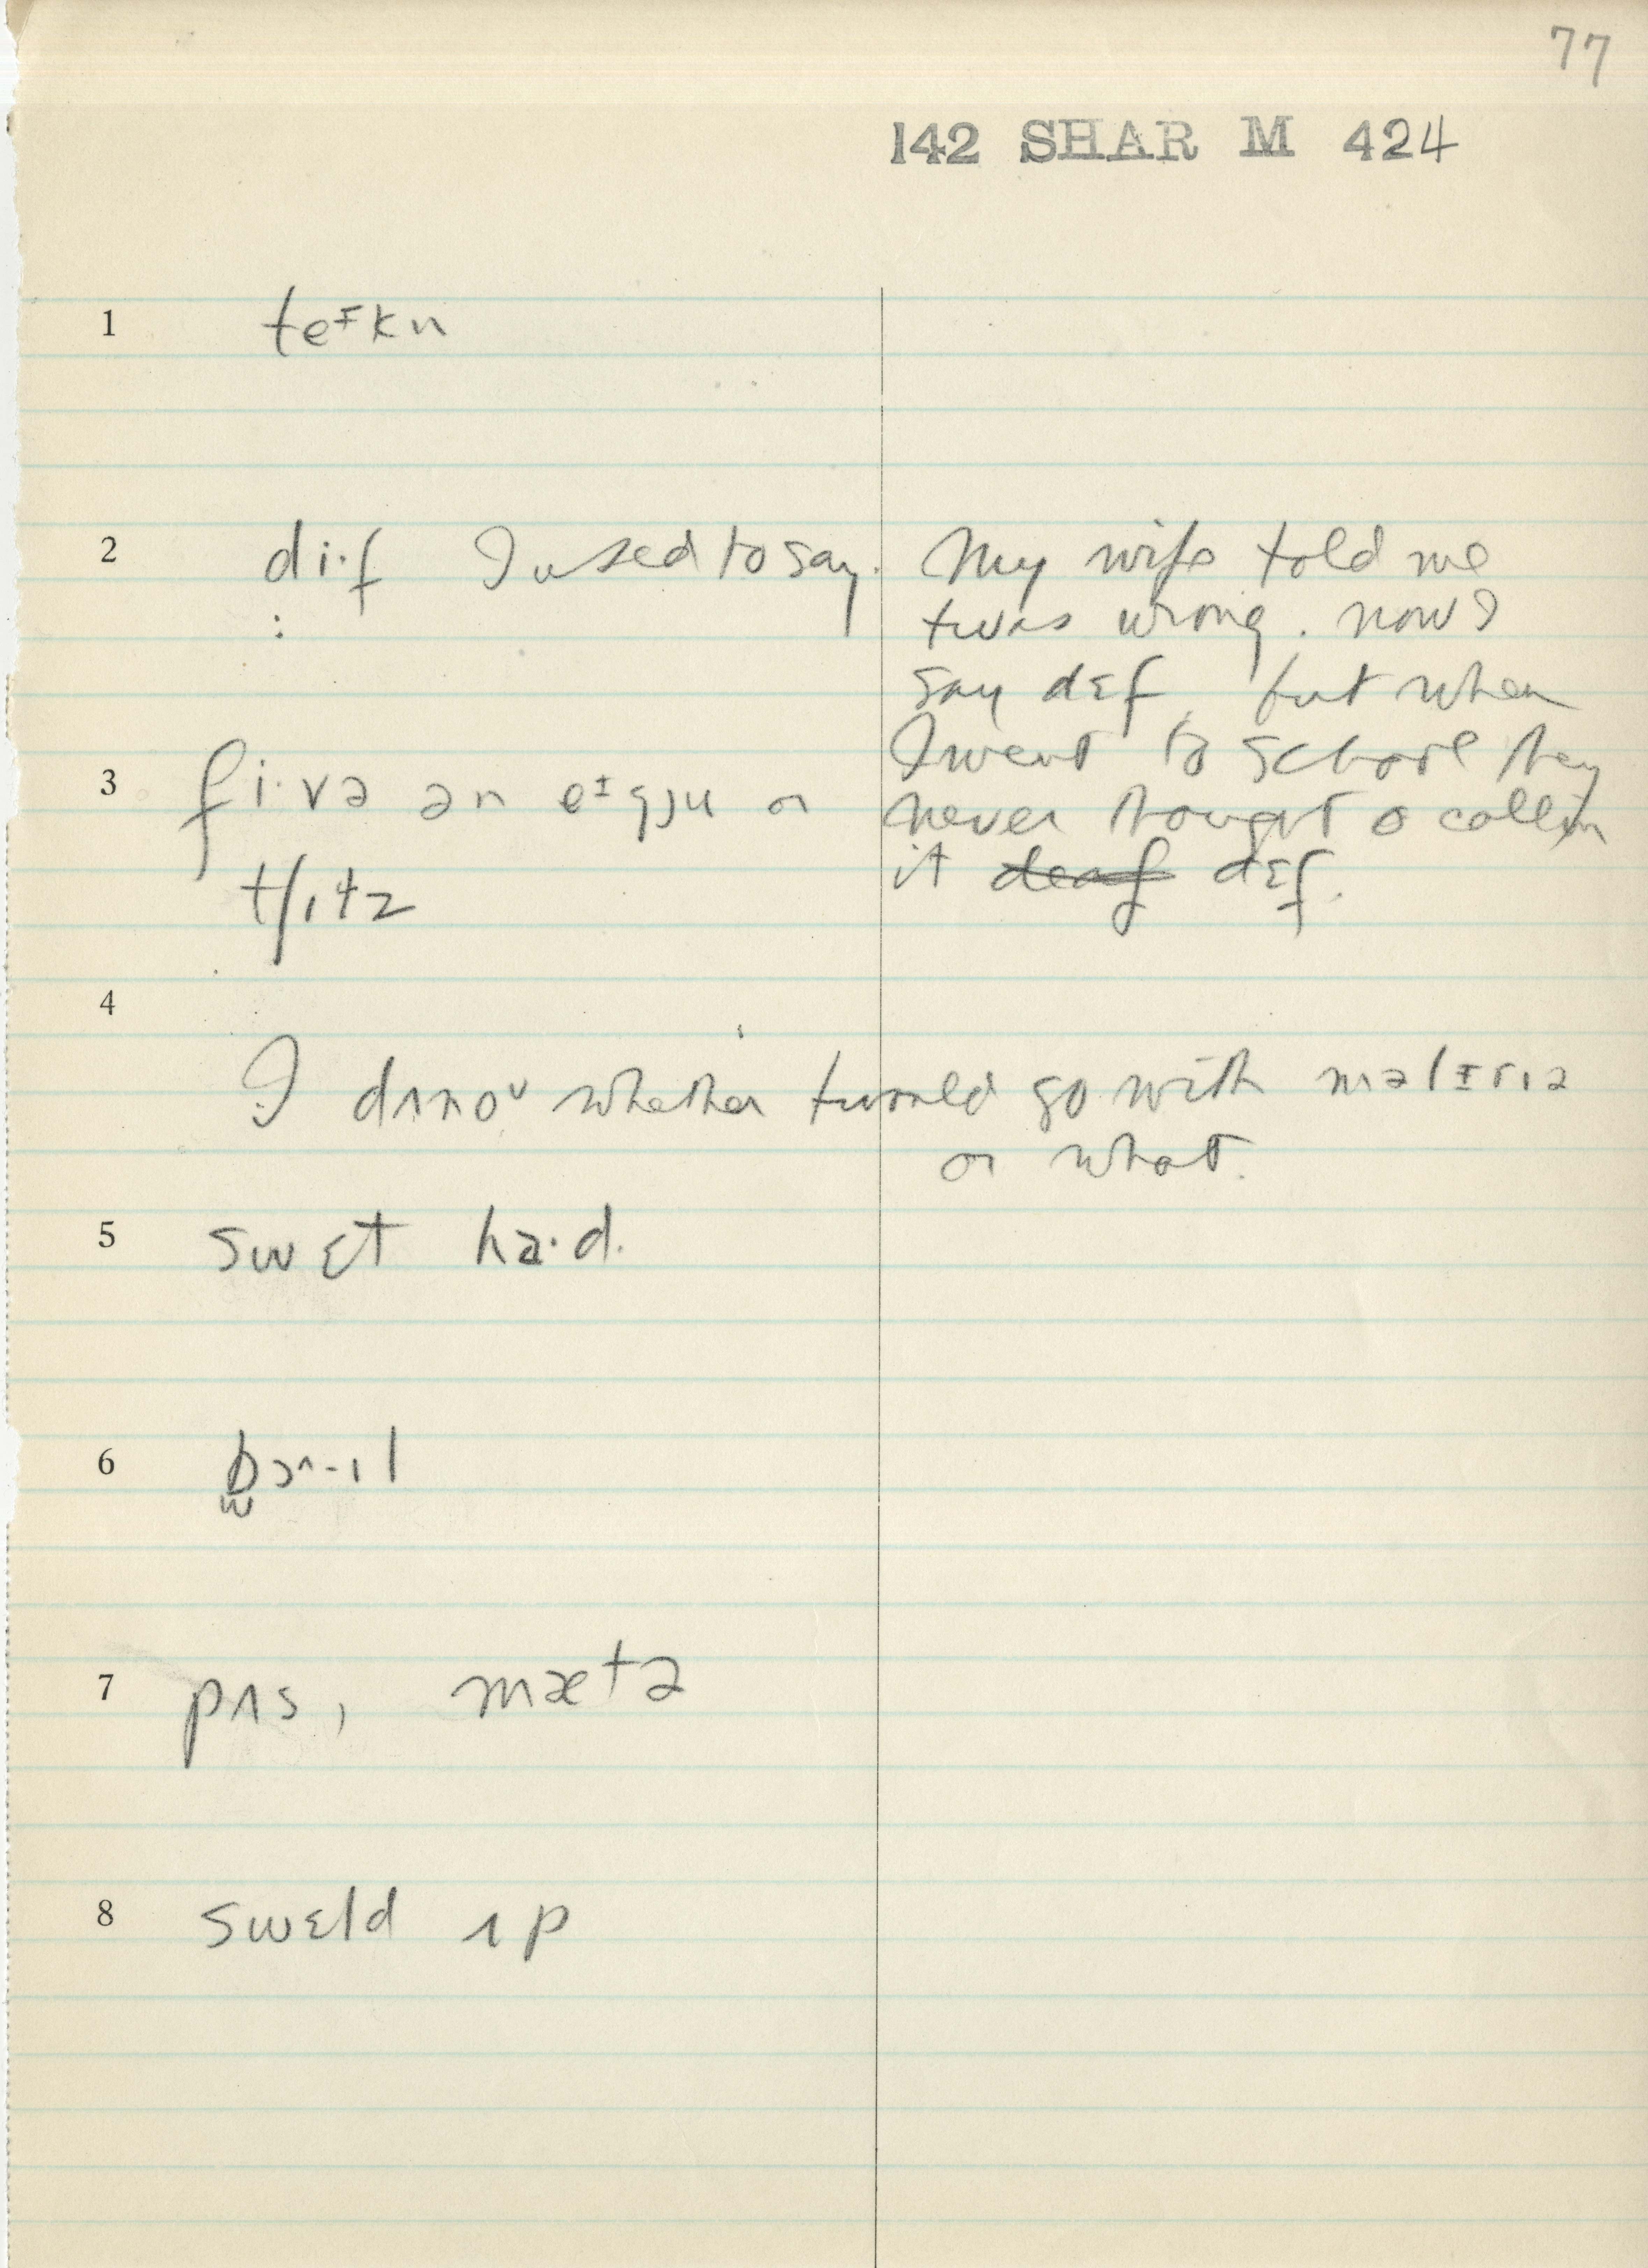 77
142 SHAR M 424
1 teɪkn
2 di·f I used to say. My wife told me
: twas wrong. now I
say dɛf, but when
I went to school they
3 fi·və ən eɪgju or never thought o callin
it deaf dɛf.
tʃɪtz
4
I dʌnoᴜ whether twould go with məlɪrɪə
or what.
5 swɛt ha·d.
6 bɔ^-ɪl
w
7 pʌs, mætə
8 swɛld ʌp